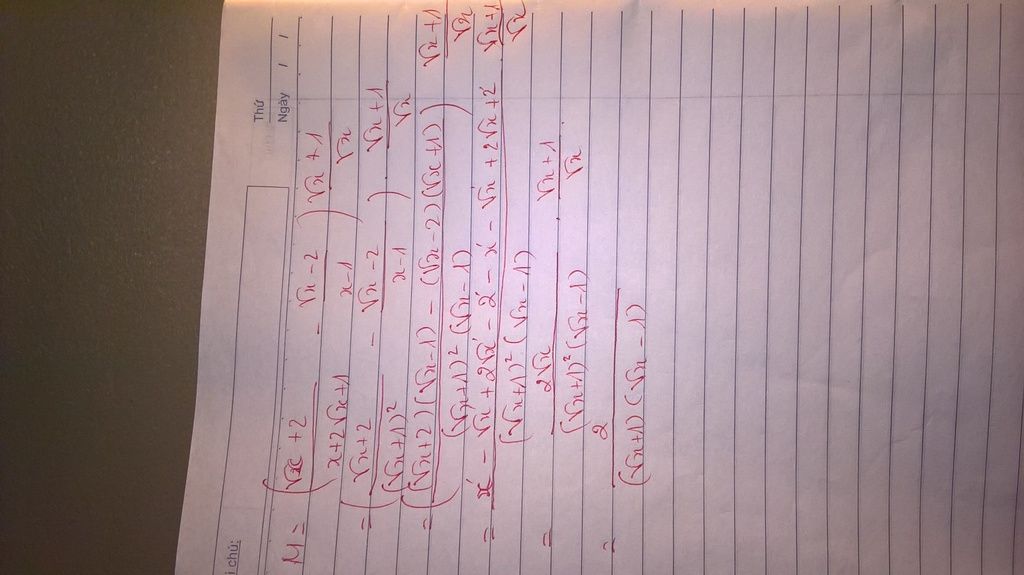 i chú:
Thứ
Ngày / /
M = ( (√x + 2)/(x + 2√x + 1) - (√x - 2)/(x - 1) ) (√x + 1)/√x
= ( (√x + 2)/(√x + 1)² - (√x - 2)/(x - 1) ) . (√x + 1)/√x
= ( ((√x + 2)(√x - 1) - (√x - 2)(√x + 1))/((√x + 1)² (√x - 1)) ) (√x + 1)/√x
= (x - √x + 2√x - 2 - x - √x + 2√x + 2)/((√x + 1)² (√x - 1)) . (√x + 1)/√x
= 2√x/((√x + 1)² (√x - 1)) . (√x + 1)/√x
= 2/((√x + 1)(√x - 1))